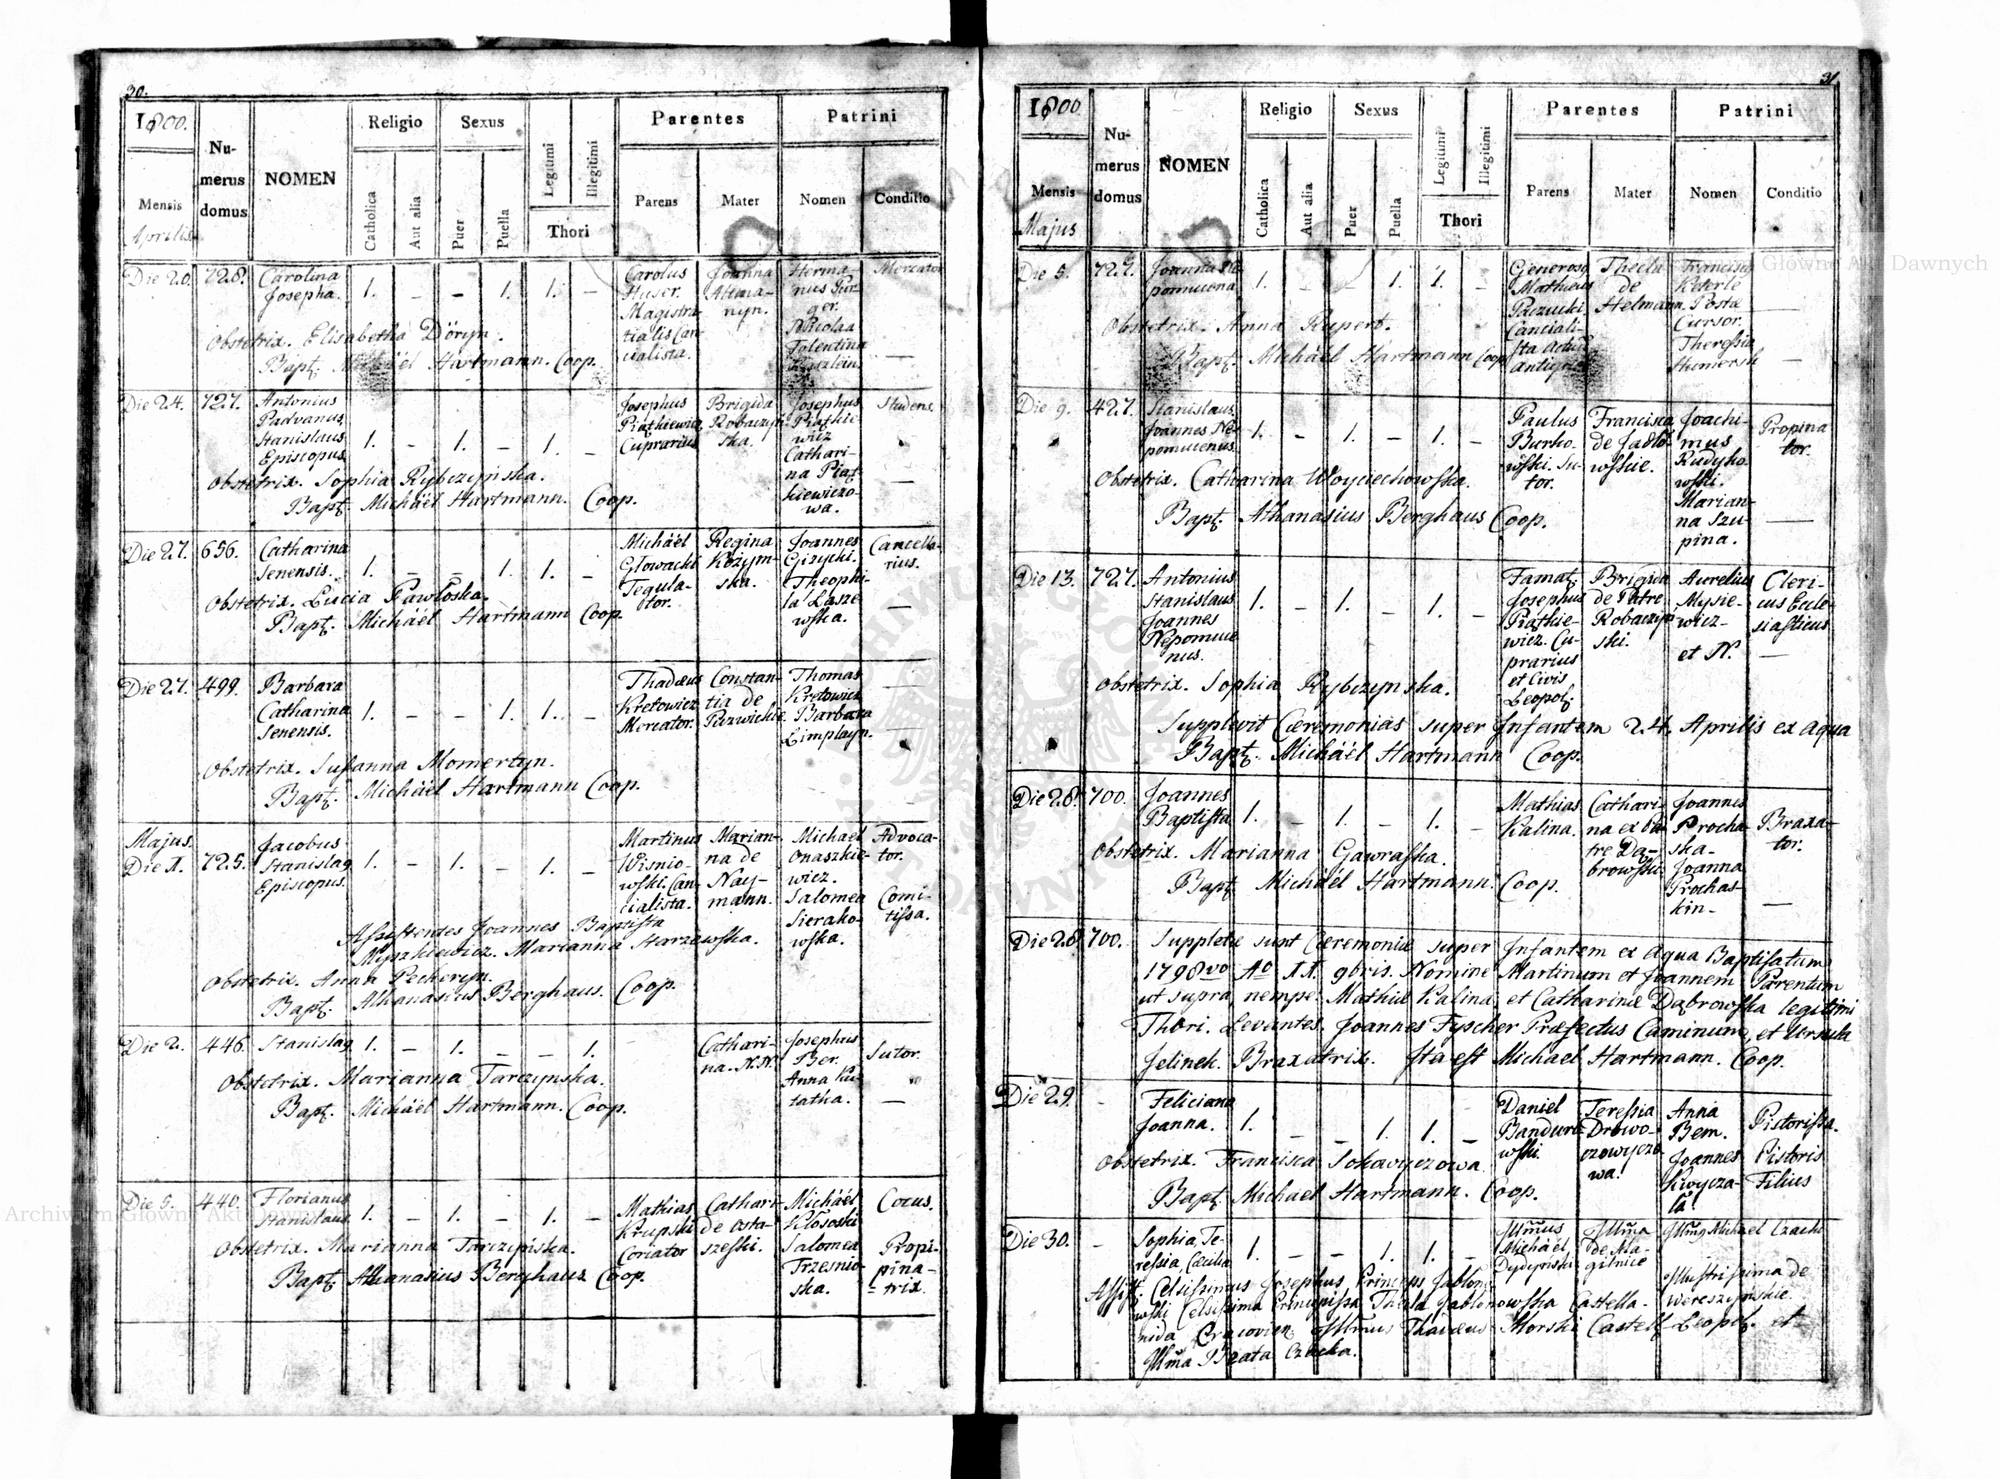 30.
1800.
Numerus domus
NOMEN
Religio
Sexus
Legitimi
Illegitimi
Parentes
Patrini
Mensis
Aprilis
Catholica
Aut alia
Puer
Puella
Thori
Parens
Mater
Nomen
Conditio
Die 20. 728. Carolina Josepha. 1. - - 1. 1. -
Carolus Huser. Magistratialis Cancialista.
Joanna
Mercator
Obstetrix. Elisabetha Döryn.
Bapt. Michäel Hartmann. Coop.
Die 24. 727. Antonius Padvanus Stanislaus Episcopus 1. - 1. - 1. -
Josephus Piątkiewicz Cuprarius
Brigida Robaczynska.
Josephus Piątkiewicz
Studens.
Catharina Piątkiewiczowa.
Obstetrix. Sophia Rybczyńska.
Bapt. Michäel Hartmann. Coop.
Die 27. 656. Catharina Senensis. 1. - - 1. 1. -
Michäel Głowacki Tegulator.
Regina
Joannes Giżycki.
Cancellarius.
Theophila Łaszewska.
Obstetrix. Lucia Pawłoska.
Bapt. Michäel Hartmann Coop.
Die 27. 499. Barbara Catharina Senensis. 1. - - 1. 1. -
Thadæus Kretowicz Mercator.
Constantia de
Thomas Kretowicz
Barbara
Obstetrix. Susanna Momertyn.
Bapt. Michäel Hartmann Coop.
Majus.
Die 1. 725. Jacobus Stanislaq Episcopus. 1. - 1. - 1. -
Martinus Wisniowski. Cancialista.
Marianna de Naymann.
Michael Onaszkiewicz.
Advocator.
Salomea Sierakowska.
Comitissa.
Assistentes Joannes Baptista
Myszkiewicz. Marianna Starzewska.
Obstetrix. Anna Peckeryn.
Bapt. Athanasius Berghaus. Coop.
Die 2. 446. Stanislaq 1. - 1. - - 1.
Catharina. N.N.
Josephus Ber.
Sutor.
Anna Kutatka.
Obstetrix. Marianna Tarczynska.
Bapt. Michäel Hartmann. Coop.
Die 5. 440. Florianus Stanislaus 1. - 1. - 1. -
Mathias Krupski Coriator
Cathari de Ostaszeski.
Michäel Kłososki
Cocus.
Salomea Trzesnioska.
Propipina=trix.
Obstetrix. Marianna Tarczyńska.
Bapt. Athanasius Berghaus Coop.
31.
1800.
Numerus domus
NOMEN
Religio
Sexus
Legitimi
Illegitimi
Parentes
Patrini
Mensis
Majus
Catholica
Aut alia
Puer
Puella
Thori
Parens
Mater
Nomen
Conditio
Die 5. 727. Joanna Nepomucena 1. - - 1. 1. -
Generosq Matheus
Thecla de Helmann.
Francisq Keterle Postæ Cursor.
Theressia
Obstetrix. Anna Rupert.
Bapt. Michäel Hartmann Coop
Die 9. 427. Stanislaus Joannes Nepomucenus. 1. - 1. - 1. -
Paulus Burkowski. Sutor.
Francisca
Joachimus Rudykowski.
Propinator.
Marianna Szupina.
Obstetrix. Catharina Woyciechowska.
Bapt. Athanasius Berghaus Coop.
Die 13. 727. Antonius Stanislaus Joannes Nepomucenus. 1. - 1. - 1. -
Famat. Josephus Piątkiewicz. Cuprarius et Civis Leopol.
Brigida de Patre Robaczynski.
Aurelius Mysiewicz
Clericus Ecclesiasticus
et N.
Obstetrix. Sophia Rybczynska.
Supplevit Cæremonias super Infantem 24. Aprilis ex aqua
Bapt. Michäel Hartmann Coop.
Die 28. 700. Joannes Baptista 1. - 1. - 1. -
Mathias Kalina.
Catharina ex Patre Dąbrowski
Joannes Prochaska.
Braxator.
Joanna Prochaskin.
Obstetrix. Marianna Gawraska.
Bapt. Michäel Hartmann. Coop.
Die 28. 700. Suppletæ sunt Cæremoniæ super Infantem ex aqua Baptisatum
1798vo Ao XX. 9bris. Nomine Martinum et Joannem Parentum
ut supra nempe. Mathiæ Kalina et Catharinæ Dąbrowska legitimi
Thori. Levantes, Joannes Fyscher Præfectus Caminum, et Ursula
Jelinek. Braxatrix. Ita est Michael Hartmann. Coop.
Die 29. - Feliciana Joanna. 1. - - 1. 1. -
Daniel Bandurowski.
Teressia
Anna Bem.
Pistorissa.
Joannes
Pistoris Filius
Obstetrix. Francisca
Bapt. Michael Hartmann. Coop.
Die 30. - Sophia, Teressia, Cæcilia 1. - - 1. 1. -
Illmus Michäel Dydyński
Illma de Magilnice
Illmq Michael Czacki
Illustrissima de Wereszyńskie.
Assist. Celsissimus Josephus Princeps Jabłonowski Celsissima Principissa Thecla Jabłonowska Castellanida Cracovien. Illmus Thadæus Morski Castell. Leopol. et
Illma Beata Czacka.
Archiwum Główne Akt Dawnych
Archiwum Główne Akt Dawnych